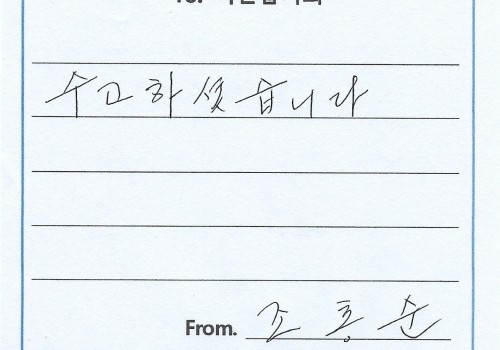 수고하셨습니다
From. 조흥순